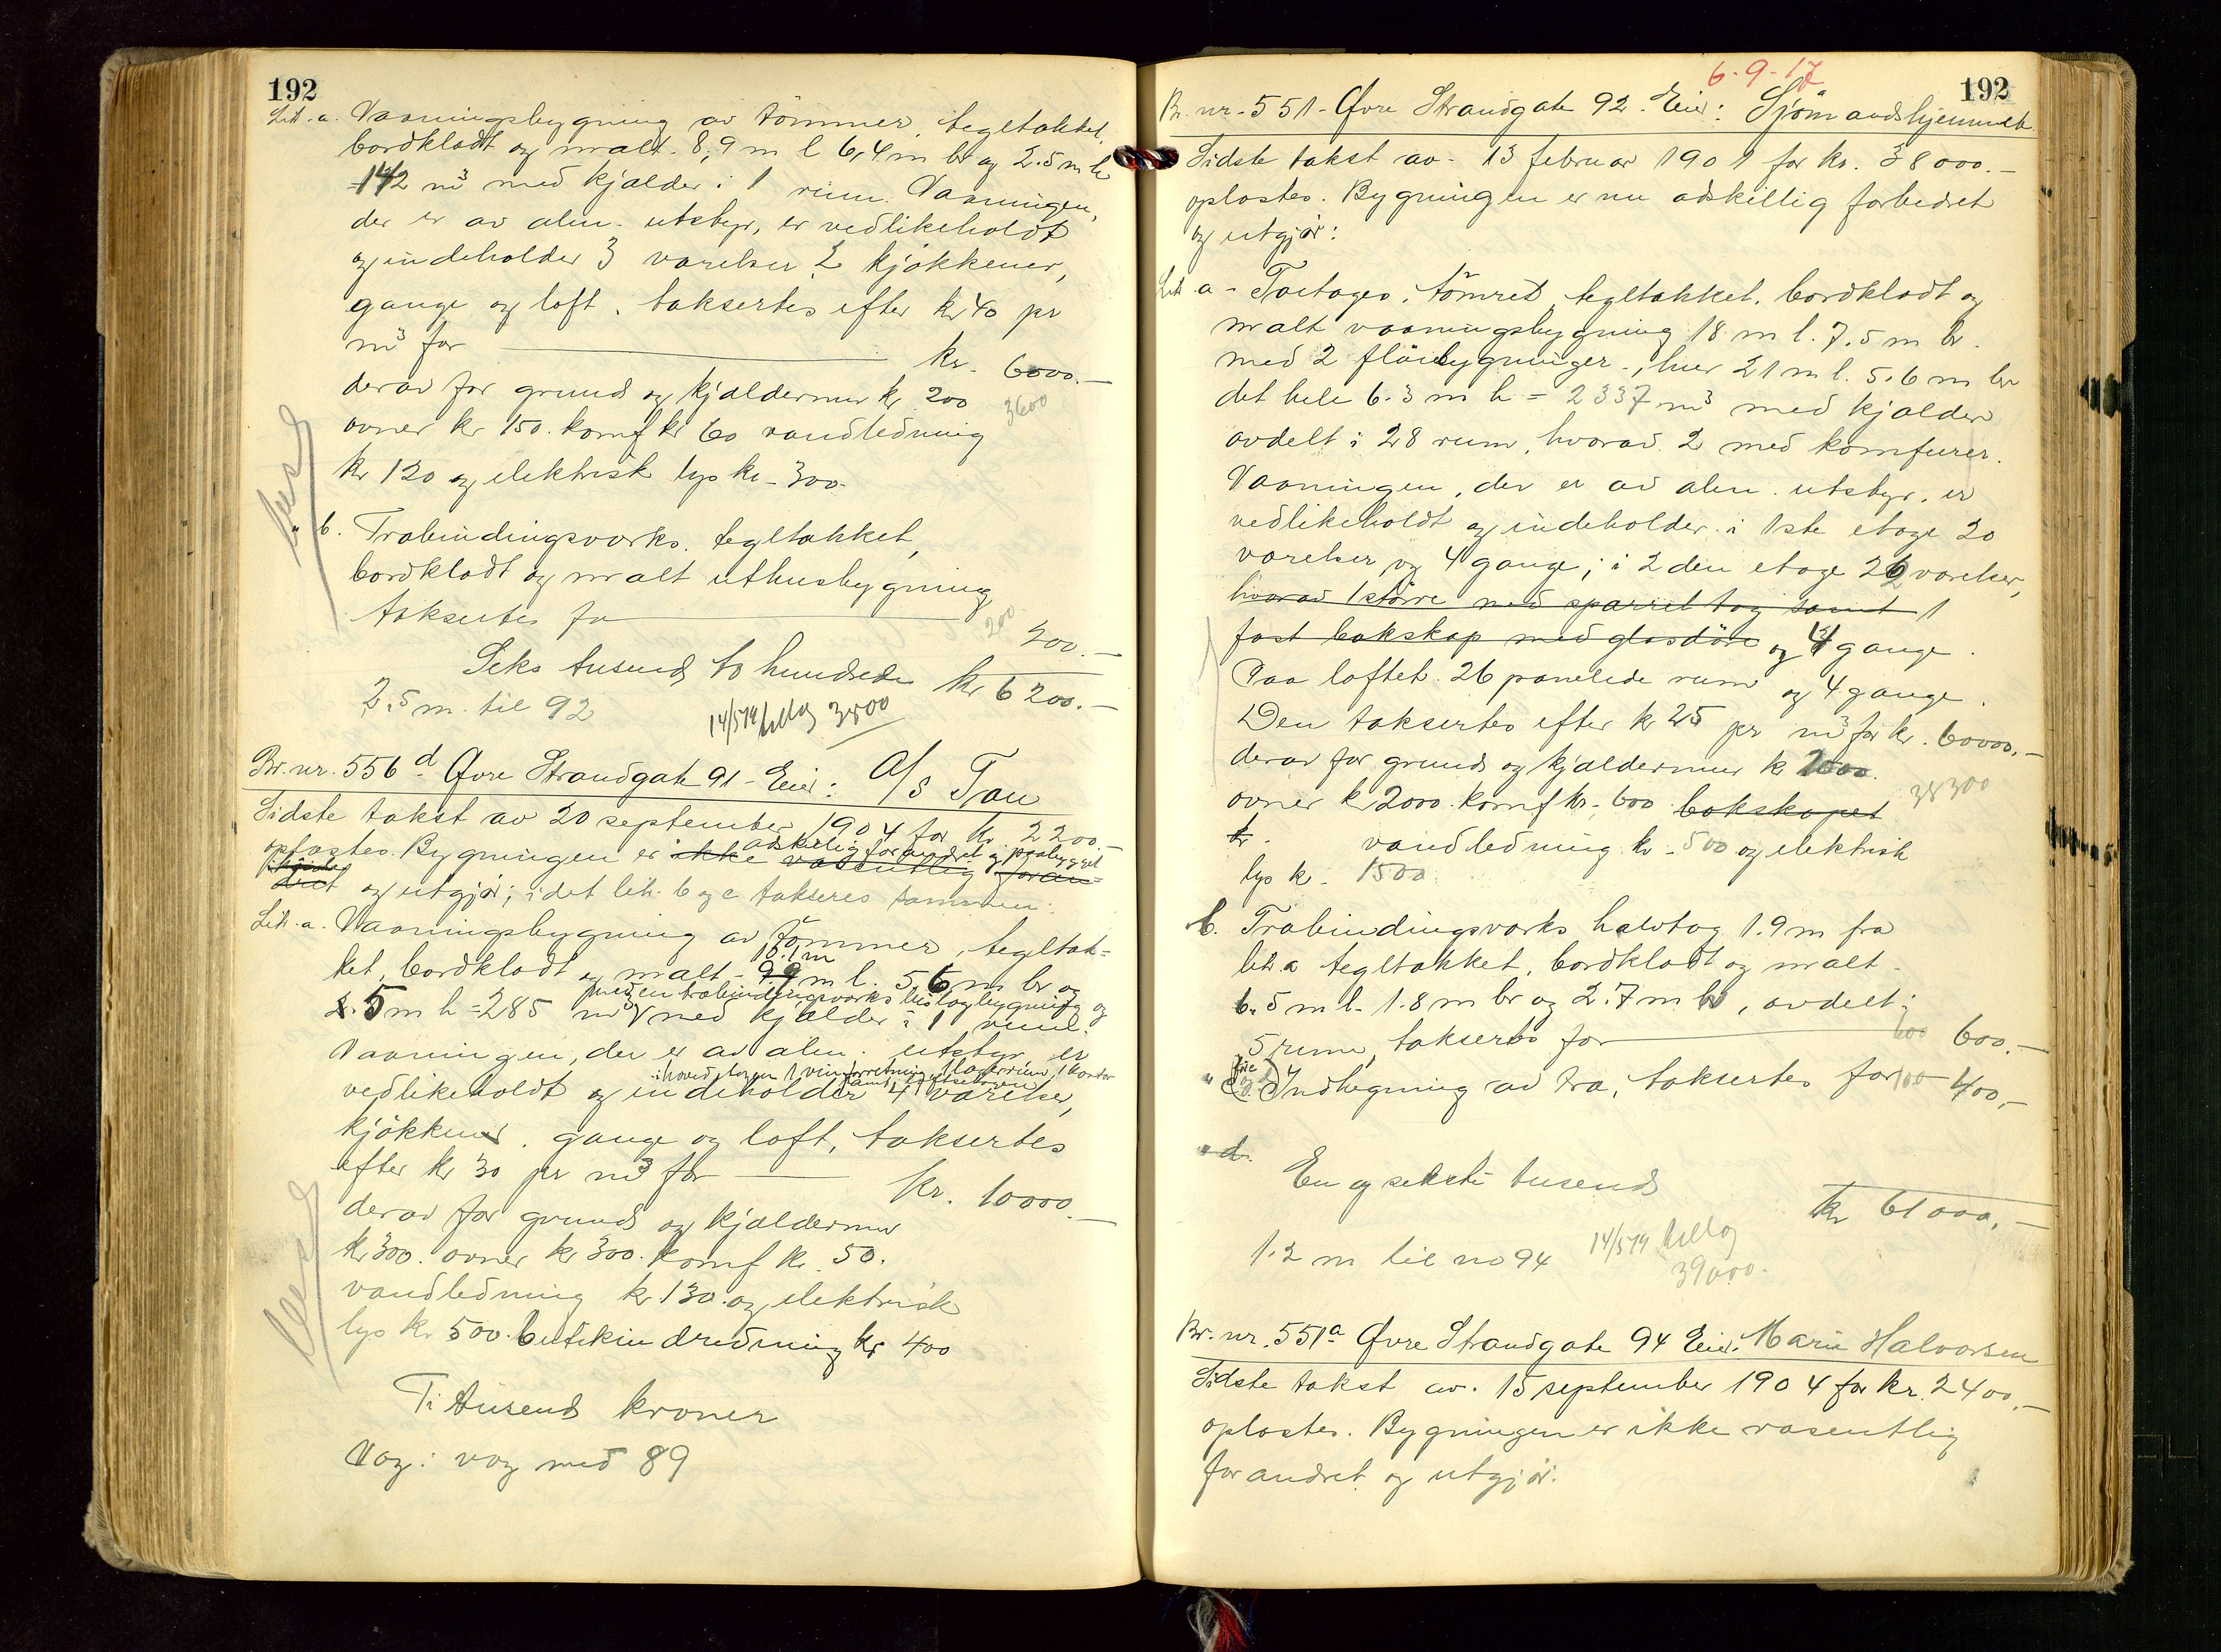 192
Lit. a. Vaaningsbygning av tömmer, tegltækket,
bordklædt og malt. 8,9 m l 6,4 m br og 2.5 m h
= 142 m3 med kjælder i 1 rum. Vaaningen,
der er av alm. utstyr, er vedlikeholdt
og indeholder 3 værelser 2 kjökkener,
gange og loft, taksertes efter kr 40 pr
m3 for kr. 6000.—
derav for grund og kjældermur kr 200 3600
ovner kr 150. komf kr 60 vandledning
kr 120 og elektrisk lys kr. 300.
" b. Træbindingsverks. tegltækket,
bordklædt og malt uthusbygning
taksertes for 200 200.—
Seks tusend to hundrede kr 6200.—
2.5 m. til 92 14/5 19 tillæg 3800
Br. nr. 556d Øvre Strandgate 91 - Eier: A/S Tau
Sidste takst av 20 september 1904 for kr. 2200.—
adskillig forandret og paabygget
oplæstes. Bygningen er ikke væsentlig foran=
dret og utgjør; idet lit. b og c takseres sammen:
Lit. a. Vaaningsbygning av tömmer, tegltæk=
10.1 m
ket, bordklædt og malt - 9.9 m l. 5.6 m br og
med en træbindingsverks bislagbygning og
5 m h = 285 m3 med kjælder i 1 rum.
Vaaningen, der er av alm. utstyr, er
i hovedetagen 1 vinforretning 1 lagerrum, 1 kontor
vedlikeholdt og indeholder samt 4 værelser,
kjökken, gange og loft, taksertes
efter kr 30 pr m3 for kr. 10000.—
derav for grund og kjældermur
kr 300. ovner kr 300. komf kr. 50.
vandledning kr. 130. og elektrisk
lys kr. 500. butikindredning kr 400
Ti tusend kroner
Væg i væg med 89
6-9-17
192
Br. nr. 551 - Øvre Strandgate 92. Eier: Sjömandshjemmet
Sidste takst av - 13 februar 1901 for kr. 38000.—
oplæstes. Bygningen er nu adskillig forbedret
og utgjør:
Lit a - Toetages, tömret, tegltækket, bordklædt og
malt vaaningsbygning 18 m l. 7.5 m br.
med 2 flöibygninger, hver 21 m l. 5.6 m br
det hele 6.3 m h = 2337 m3 med kjælder
avdelt i 28 rum, hvorav 2 med komfurer.
Vaaningen, der er av alm. utstyr, er
vedlikeholdt og indeholder i 1ste etage 20
værelser og 4 gange; i 2den etage 26 værelser,
hvorav 1 större med sparret tag samt 1
fast bokskap med glasdöre og 4 gange.
Paa loftet 26 panelede rum og 4 gange.
Den taksertes efter kr 25 pr m3 for kr. 60000.—
derav for grund og kjældermur kr 2000.
ovner kr 2000. komf kr. 600. bokskapet 38300
kr. vandledning kr. 500 og elektrisk
lys kr. 1500
b. Træbindingsverks halvtag 1.9 m fra
lit. a tegltækket, bordklædt og malt.
6.5 m l. 1.8 m br og 2.7 m h, avdelt i
5 rum, taksertes for 600 600.—
" c Indhegning av træ, taksertes for 100 400.—
" d.
En og seksti tusend
kr 61000.—
1.2 m til no 94 14/5 19 tillæg
39000.
Br. nr. 551a Øvre Strandgate 94 Eier: Marie Halvorsen
Sidste takst av. 15 september 1904 for kr. 2400.—
oplæstes. Bygningen er ikke væsentlig
forandret og utgjør: